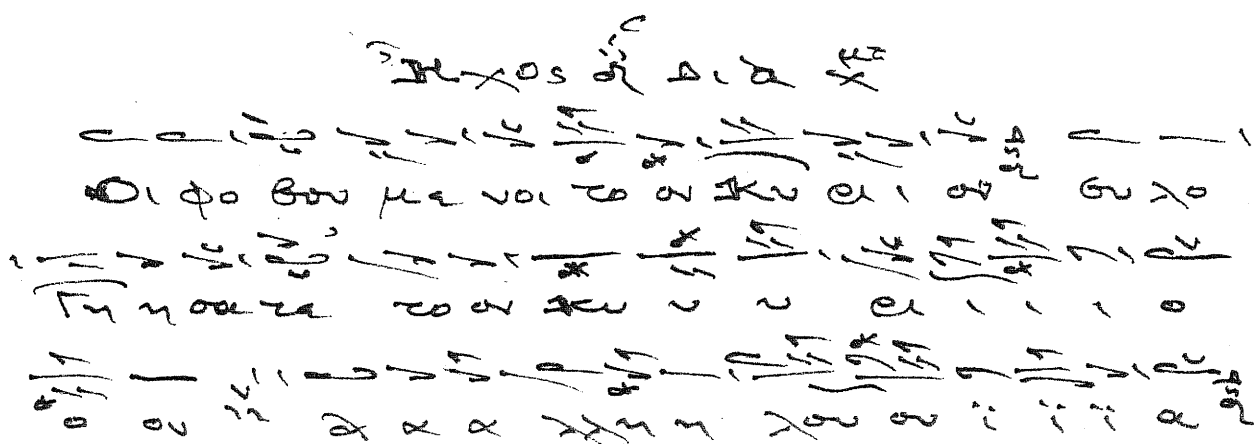 Ἦχος δ Διὰ χ
Οι φο βου με νοι το ον Κυ ει ι ον ευ λο
γη η σα τε το ον Κυ υ υ ει ι ι ι ο
ο ον α α α λλη η λου ου ϊ ϊ ϊ α